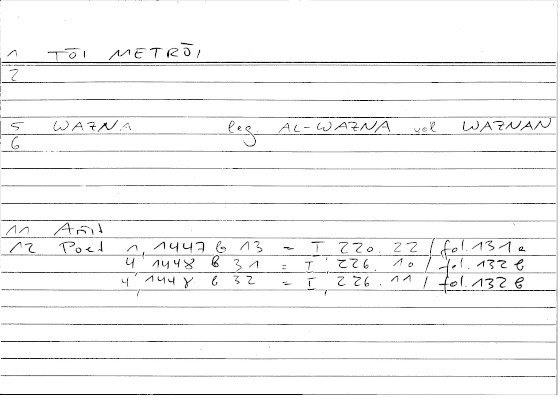 1 TŌI METRŌI
2
5 WAZNA leg AL-WAZNA vel WAZNAN
6
11 Arist
12 Poet 1, 1447 b 13 = I 220. 22 / fol. 131 a
4, 1448 b 31 = I, 226. 10 / fol. 132 b
4, 1448 b 32 = I, 226. 11 / fol. 132 b